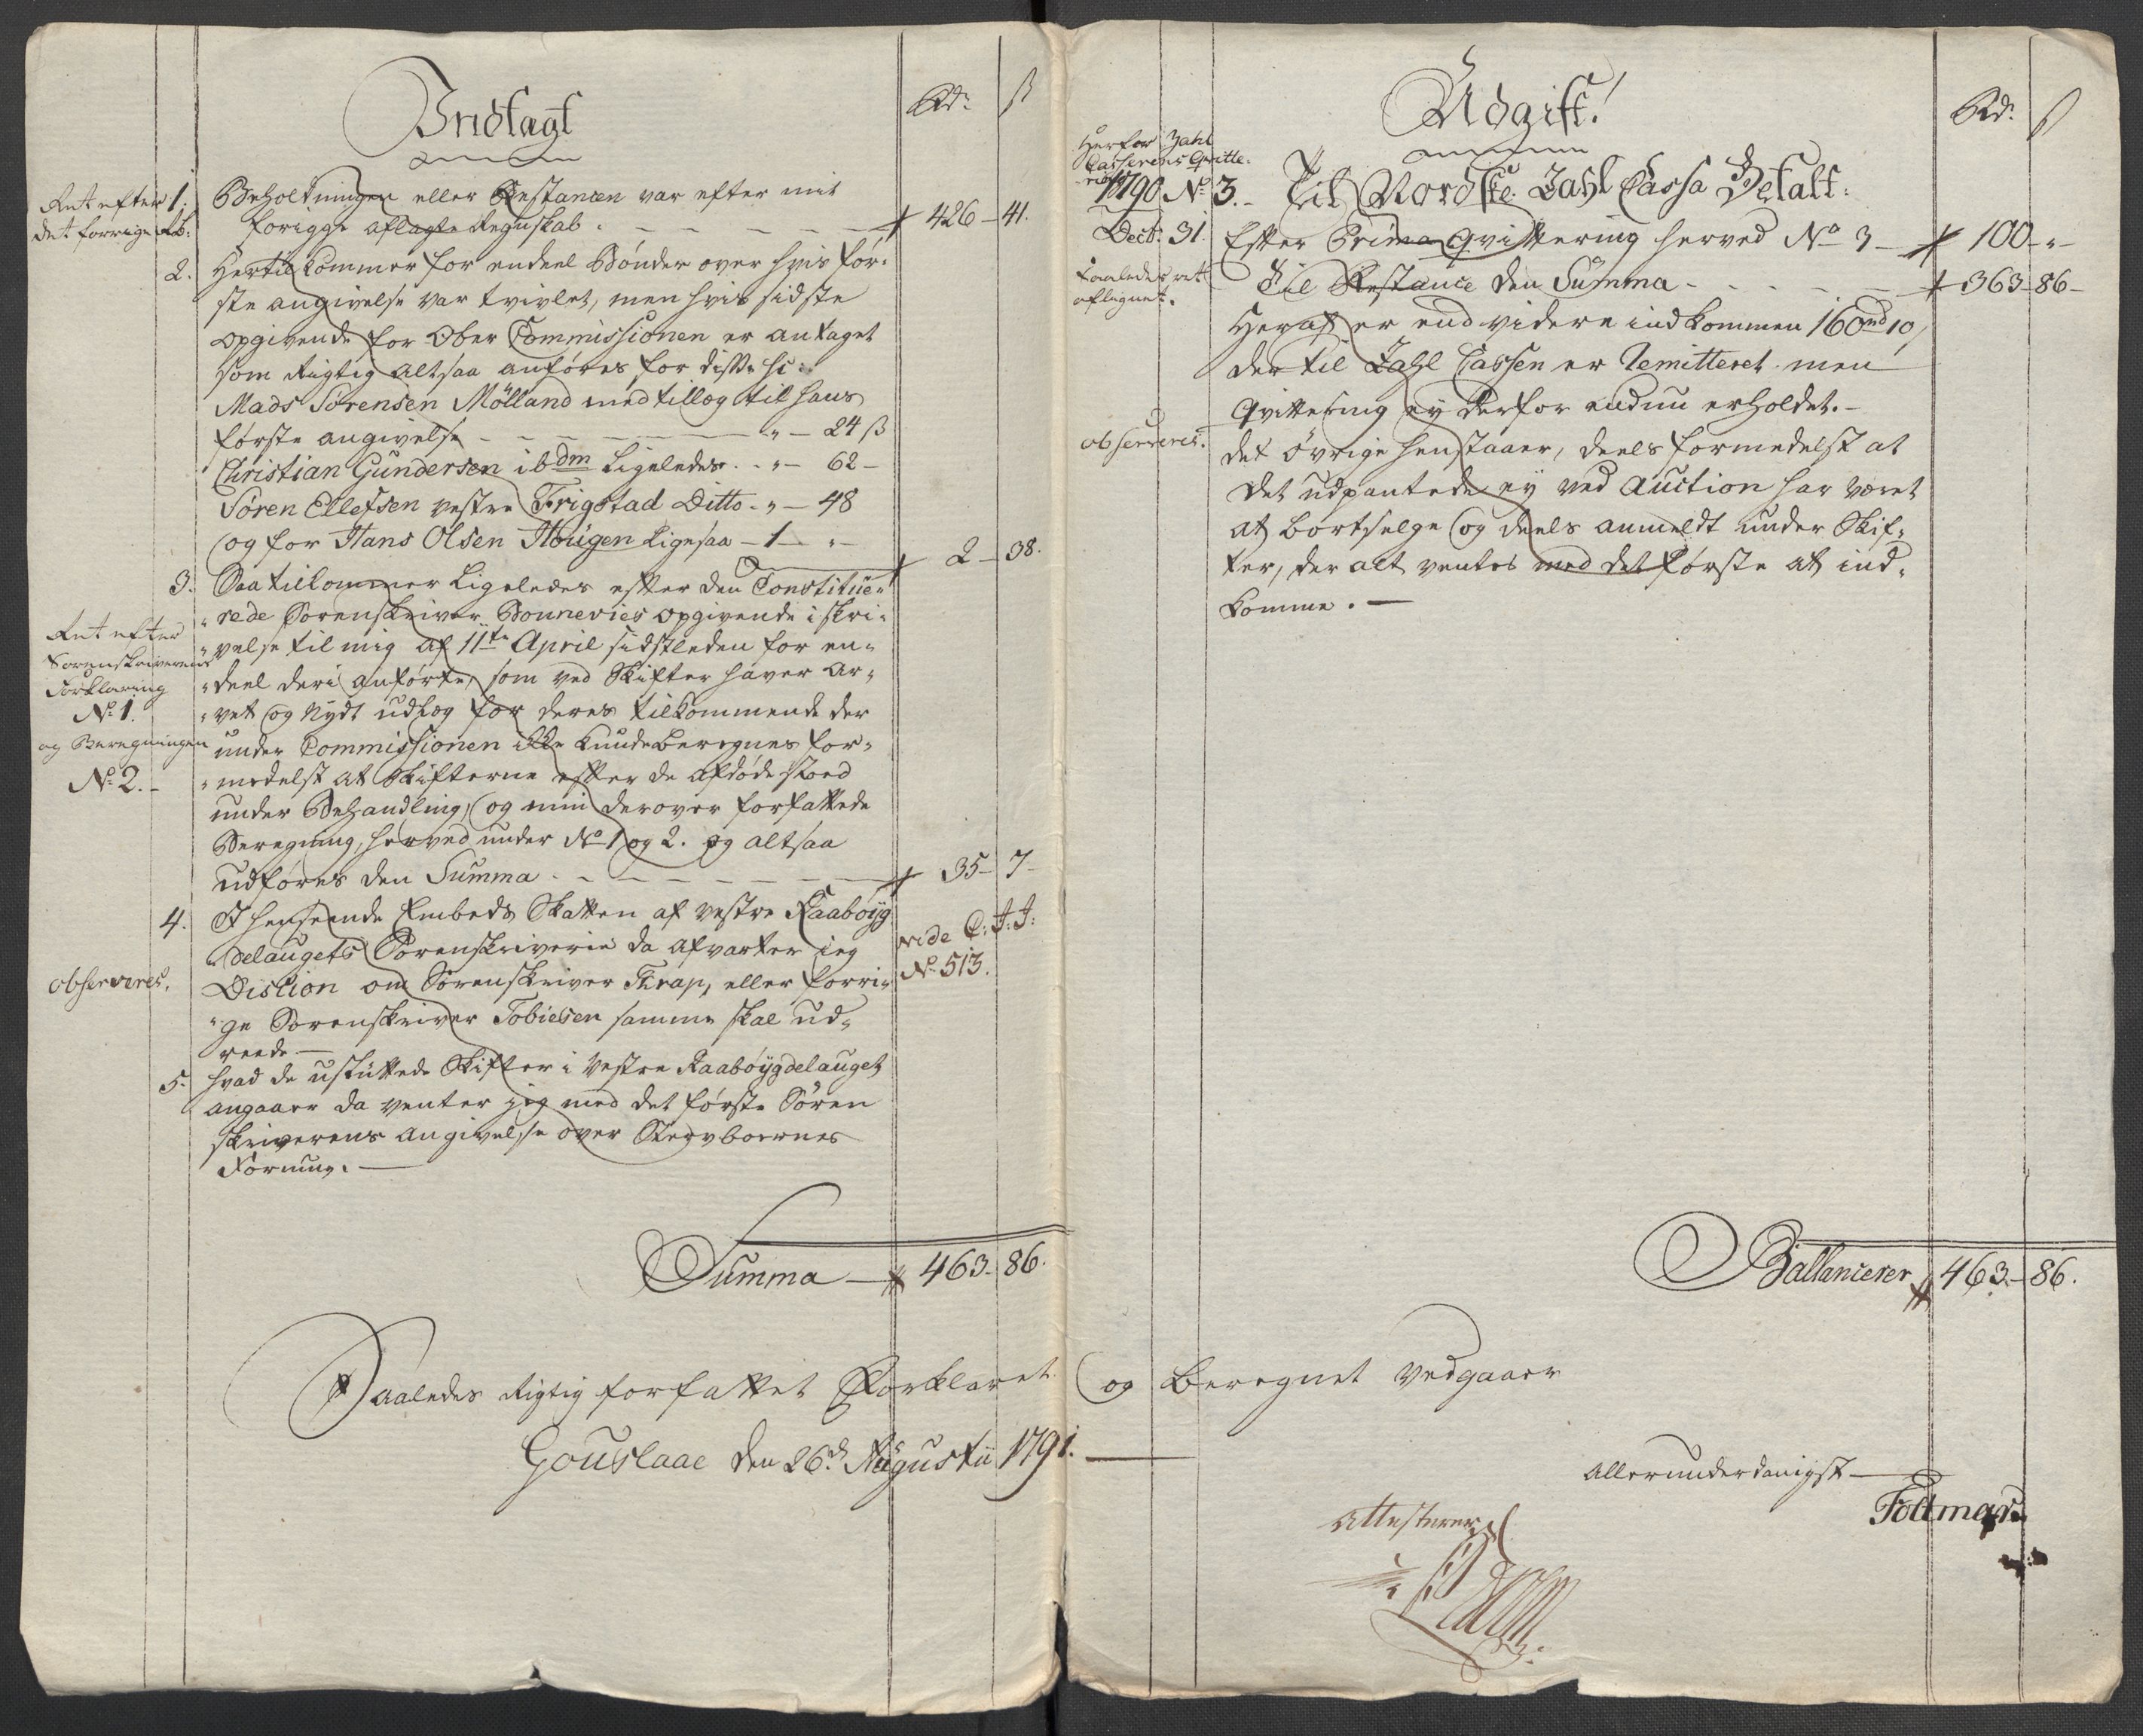 Indtægt
Rdr. ß
Ret efter
det forrige Rb:
1. Beholdningen eller Restancen var efter mit
forigge aflagte Regnskab . – – – – 426 – 41.
2. Hertil kommer for endeel Bönder over hvis för-
ste angivelse var tvivlet, men hvis sidste
opgivende for Ober Commissionen er antaget
som Rigtig altsaa anföres for disse sc:
Mads Sörensen Mölland med tillæg til hans
förste angivelse – – – – " – 24 ß
Christian Gundersen ibdm Ligeledes . - " – 62 –
Sören Ellefsen vestre Frigstad Ditto - " – 48
og for Hans Olsen Hougen Ligesaa – 1 – " –
2 – 38.
3. Saa tilkommer Ligeledes efter den Constitue-
"rede Sorenskriver Bonnevies opgivende i skri-
"velse til mig af 11te April sidstleden for en-
"deel deri anförte, som ved Skifter haver Ar-
"vet og Nydt udlæg for deres tilkommende der
under Commissionen ikke kunde beregnes for-
"medelst at Skifterne efter de afdöde stoed
under Behandling, og min derover forfattede
Beregning, herved under No 1 og 2. og altsaa
udföres den Summa . – – – – – 35 – 7 –
Ret efter
Sorenskriverens
Forklaring
No 1.
og Beregningen
No 2. –
4. I henseende Embeds Skatten af vestre Raaböyg
delaugets Sorenskriverie da afvarter jeg
Discion om Sorenskriver Thrap, eller forri-
"ge Sorenskriver Tobiesen samme skal ud-
reede. –
observeres.
vide C: J: J:
No 513.
5. hvad de usluttede Skifter i Vestre Raaböygdelauget
angaaer da venter jeg med det förste Sören
skriverens angivelse over Stervboernes
Formue. –
Summa – 463 – 86.
Udgift!
Rdr. ß
Herfor Zahl
Casserens Qvitte-
ring
1790 No 3. – Til Nordske Zahl Cassa Betalt.
Decb: 31. Efter Prima Qvittering herved No 3 – 100 – " –
Saaledes ret
aflignet.
Til Restance den Summa – – – – – 363 – 86 –
Heraf er end videre indkommen 160rd 10,
der til Zahl Cassen er Remitteret men
Qvittering ey derfor endnu erholdet. –
observeres.
det övrige henstaaer, deels formedelst at
det udpantede ey ved Auction har været
at bortselge og deels anmeldt under Skif-
ter, der alt ventes med det förste at ind-
komme. –
Ballancerer 463 – 86.
Saaledes Rigtig forfattet Forklaret og Beregnet vedgaaer
Gouslaae den 26d Augustii 1791.
Allerunderdanigst –
Foltmar
Attesterer